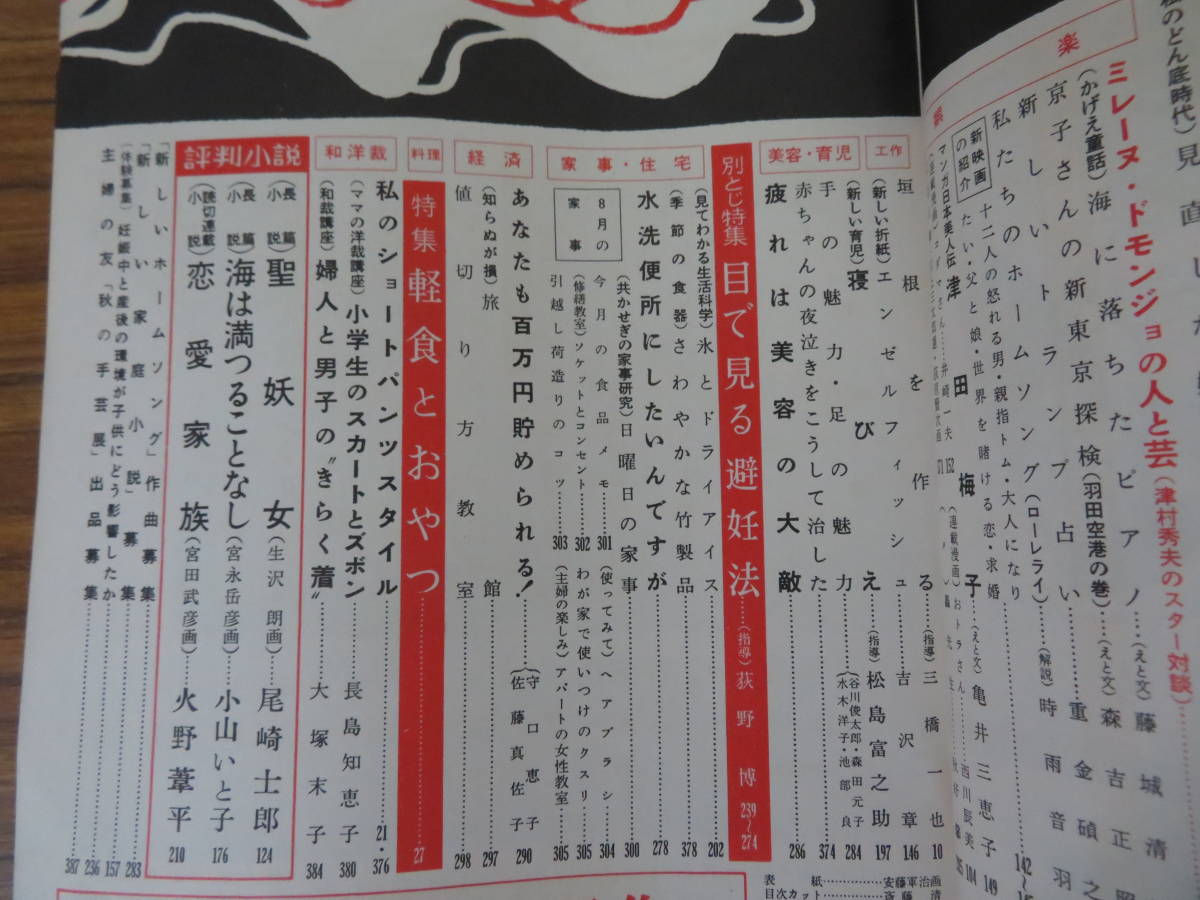 のどん底時代)見直した
ミレーヌ・ドモンジョの人と芸(津村秀夫のスター対談)
楽
(かげえ童話)海に落ちたピアノ…(えと文)藤城清
京子さんの新東京探検(羽田空港の巻)…(えと文)森吉正照
新しいトランプ占い……重金碩之
私たちのホームソング(ローレライ)……(解説)時雨音羽 142〜
新映画の紹介 十二人の怒れる男・親指トム・大人になりたい・父と娘・世界を賭ける恋・求婚
津田梅子…(えと文)亀井三恵子 149
工作
垣根を作る…(指導)三橋一也 10
(新しい折紙)エンゼルフィッシュ……吉沢章 146
美容・育児
(新しい育児)寝びえ…(指導)松島富之助 197
手の魅力・足の魅力……(谷川俊太郎・森田元子 水木洋子・池部良) 284
赤ちゃんの夜泣きをこうして治した……374
疲れは美容の大敵……286
別とじ特集 目で見る避妊法……(指導)荻野博 239〜274
家事・住宅
(見てわかる生活科学)氷とドライアイス……202
(季節の食器)さわやかな竹製品……378
水洗便所にしたいんですが……278
(共かせぎの家事研究)日曜日の家事……300
8月の家事
今月の食品メモ……301
(修繕教室)ソケットとコンセント……302
引越し荷造りのコツ……303
(使ってみて)ヘアブラシ……304
わが家で使いつけのクスリ……305
(主婦の楽しみ)アパートの女性教室……305
経済
あなたも百万円貯められる!……(守口恵子 佐藤真佐子) 290
(知らぬが損)旅館……297
値切り方教室……298
料理
特集 軽食とおやつ……27
和洋裁
私のショートパンツスタイル……21・376
(ママの洋裁講座)小学生のスカートとズボン……長島知恵子 380
(和裁講座)婦人と男子の“きらく着”……大塚末子 384
評判小説
(長篇小説)聖妖女(生沢朗画)……尾崎士郎 124
(長篇小説)海は満つることなし(宮永岳彦画)……小山いと子 176
(読切連載小説)恋愛家族(宮田武彦画)……火野葦平 210
「新しいホームソング」作曲募集……283
「新しい家庭小説」募集……157
(体験募集)妊娠中と産後の環境が子供にどう影響したか……236
主婦の友「秋の手芸展」出品募集……387
表紙……安藤軍治画
目次カット……斎藤清